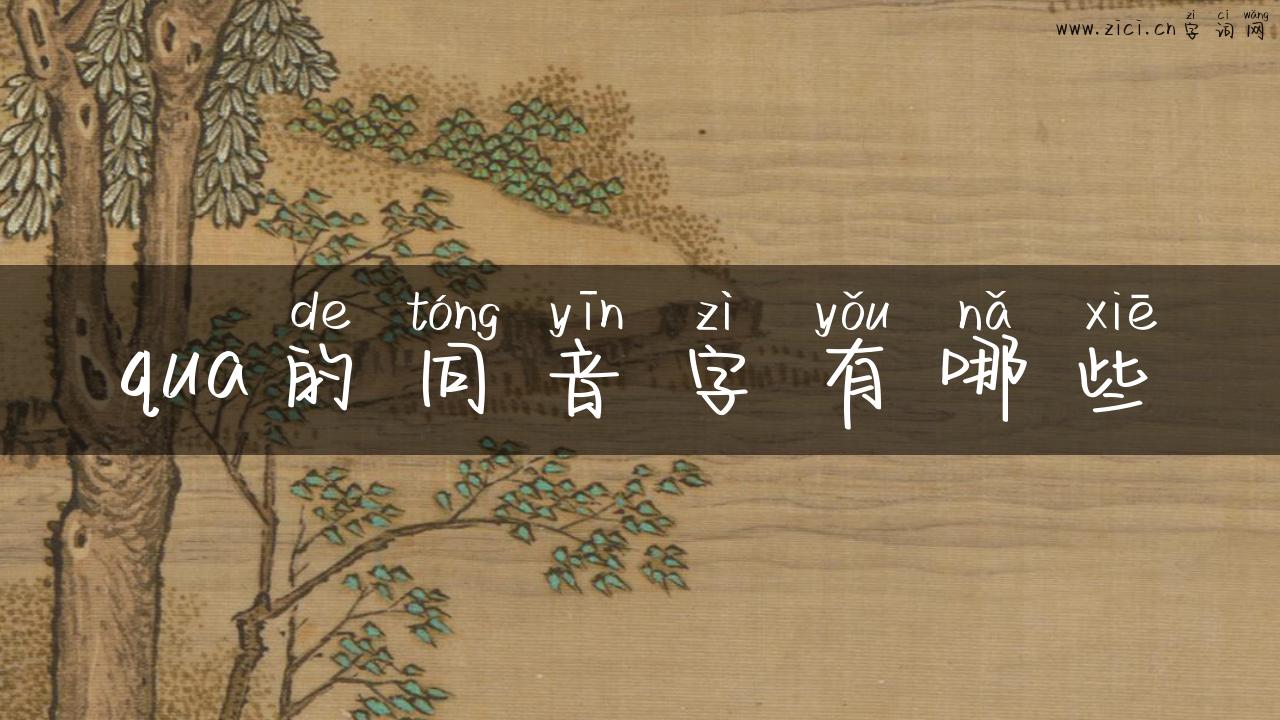 zì cí wǎng
www.zici.cn 字词网
de tóng yīn zì yǒu nǎ xiē
qua 的同音字有哪些